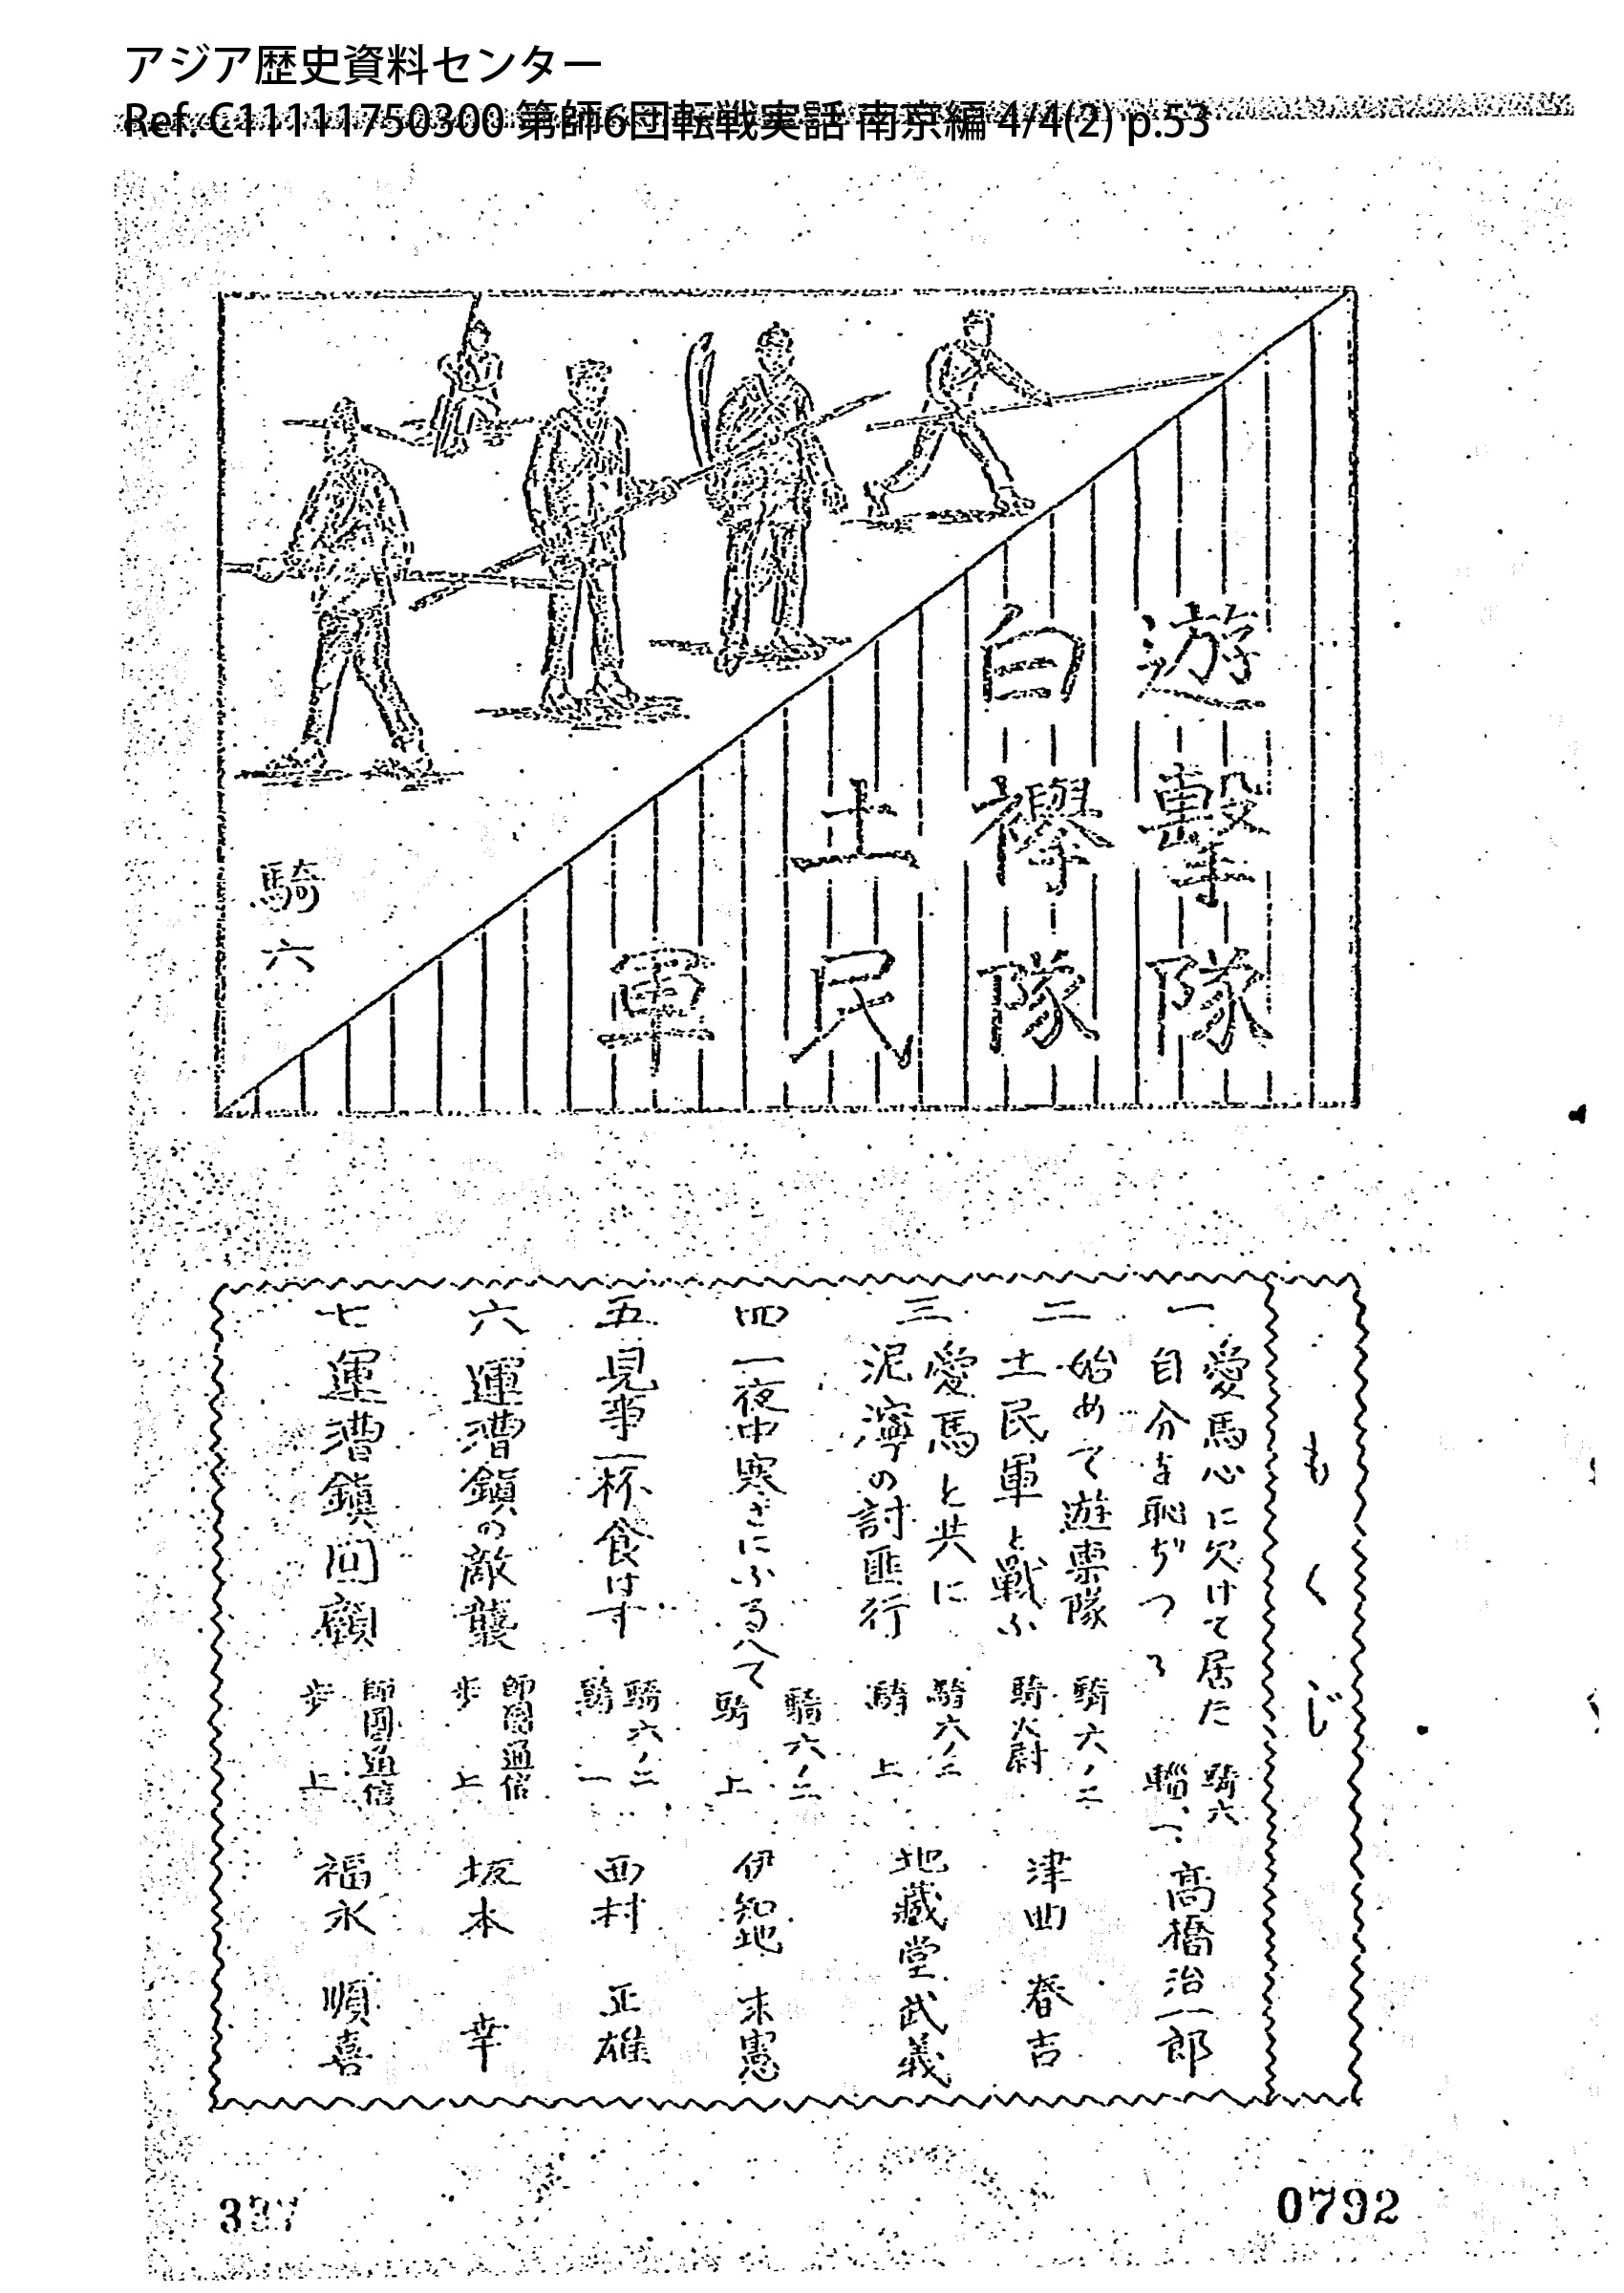 アジア歴史資料センター
Ref. C11111750300 第師6団転戦実話 南京編 4/4(2) p.53
遊撃隊
白襷隊
土民
軍
騎六
もくじ
一 愛馬心に欠けて居た
自分を恥ぢつゝ
騎六
輜、一
高橋治一郎
二 始めて遊撃隊
土民軍と戦ふ
騎六ノ二
騎大尉
津曲 春吉
三 愛馬と共に
泥濘の討匪行
騎六ノ二
騎 上
地蔵堂武義
四 一夜中寒さにふるへて
騎六ノ二
騎 上
伊知地 末憲
五 見事一杯食はす
騎六ノ二
騎 一
西村 正雄
六 運漕鎮の敵襲
師團通信
歩 上
坂本 幸
七 運漕鎮回顧
師團通信
歩 上
福永 順喜
337
0792